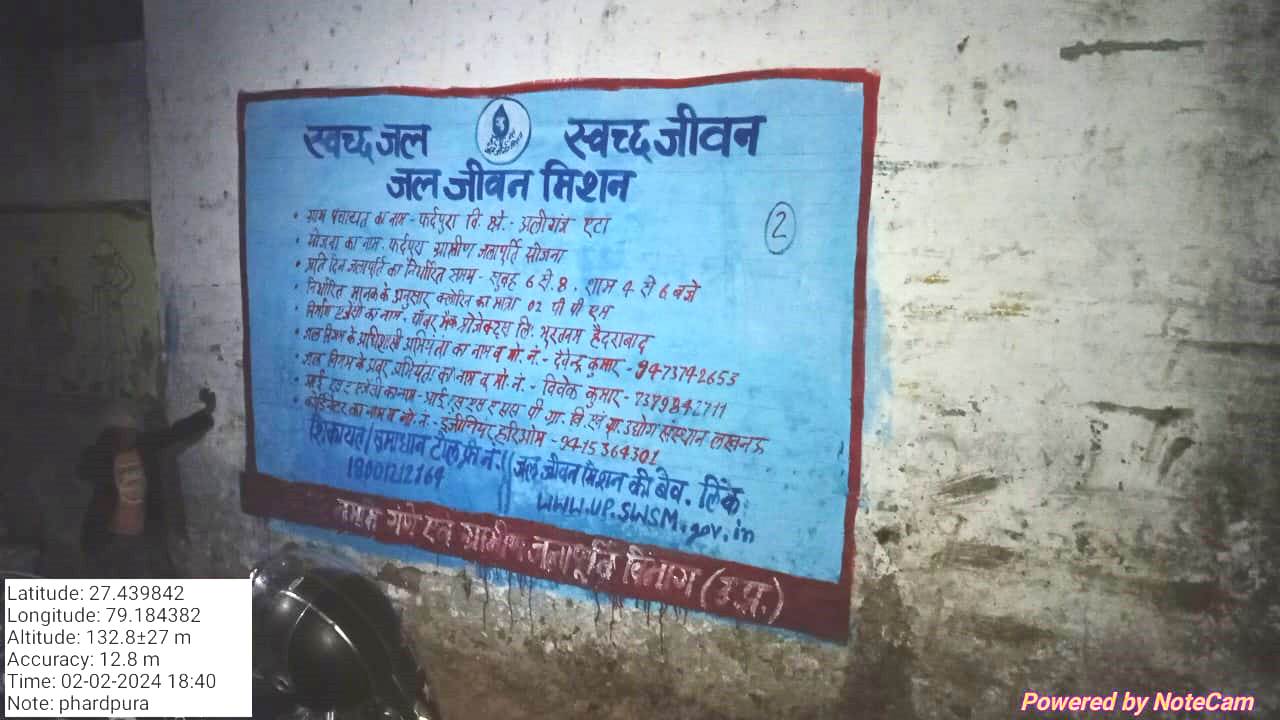 स्वच्छ जल स्वच्छ जीवन
जल जीवन मिशन
2
• ग्राम पंचायत का नाम - फर्दपुरा वि. क्षे. - अलीगंज एटा
• योजना का नाम. फर्दपुरा ग्रामीण जलापूर्ति योजना
• प्रति दिन जलापूर्ति का निर्धारित समय - सुबह 6 से 8. शाम 4 से 6 बजे
• निर्धारित मानक के अनुसार क्लोरिन की मात्रा 02 पी पी एम
• निर्माण एजेंसी का नाम. पॉवर मैक प्रोजेक्ट्स लि. हैदराबाद
• जल निगम के अधिशासी अभियंता का नाम व मो. नं. - देवेन्द्र कुमार - 9473742653
• जल निगम के अभियंता का नाम व मो. नं. - विवेक कुमार - 7379842711
• आई एस ए एजेंसी का नाम - पी ग्रा. वि. एवं ग्रा. उद्योग संस्थान लखनऊ
का नाम व मो. नं. - इंजीनियर हरिओम - 9415364301
शिकायत/समाधान टोल फ्री नं. || जल जीवन मिशन की बेव. लिंक
18001212164 www.UP.SWSM.gov.in
नमामि गंगे एवं ग्रामीण जलापूर्ति विभाग (उ.प्र.)
Latitude: 27.439842
Longitude: 79.184382
Altitude: 132.8±27 m
Accuracy: 12.8 m
Time: 02-02-2024 18:40
Note: phardpura
Powered by NoteCam